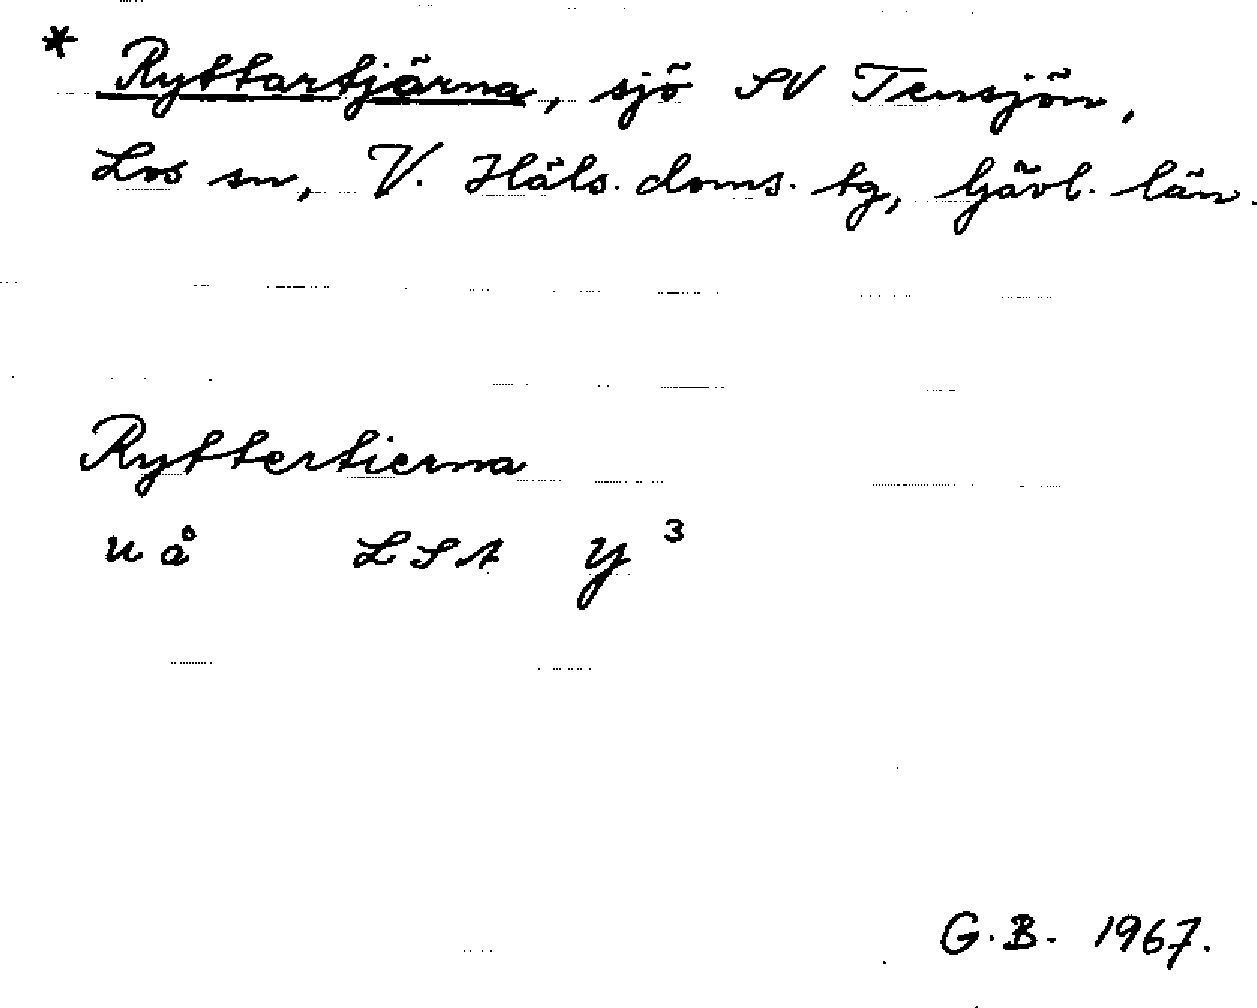 * Ryttartjärna, sjö SV Tensjön,
Los sn, V. Häls. doms. tg, Gävl. län.
Ryttertierna
u å LSA y 3
G.B. 1967.